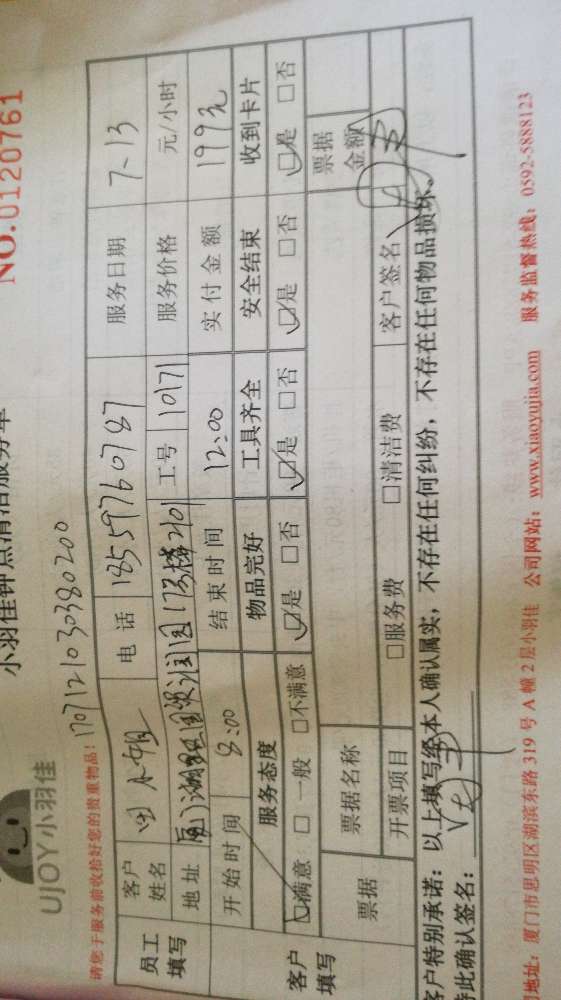 小羽佳钟点清洁服务单
NO.0120761
UJOY小羽佳
请您于服务前收拾好您的贵重物品！
170712103038020 0
员工填写
客户姓名 田小姐 电话 18559760787 服务日期 7-13
地址 173楼2101 工号 10171 服务价格 元/小时
客户填写
开始时间 8:00 结束时间 12:00 实付金额 199元
服务态度 物品完好 工具齐全 安全结束 收到卡片
☑满意 □一般 □不满意 ☑是 □否 ☑是 □否 ☑是 □否 ☑是 □否
票据 票据名称 票据金额
开票项目 □服务费 □清洁费 客户签名
客户特别承诺：以上填写经本人确认属实，不存在任何纠纷，不存在任何物品损坏。
特此确认签名：
地址：厦门市思明区湖滨东路 319 号 A 幢 2 层小羽佳 公司网站：www.xiaoyujia.com 服务监督热线：0592-5888123